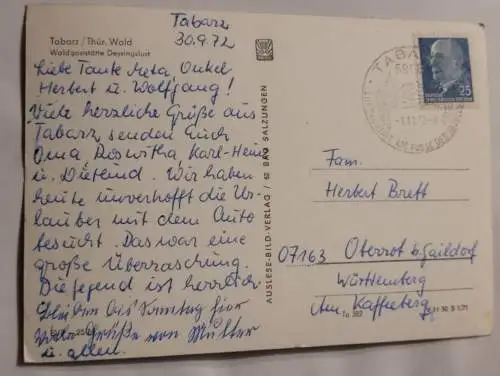 Tabarz
30.9.72
Tabarz / Thür. Wald
Waldgaststätte Deysingslust
Liebe Tante Meta, Onkel
Herbert u. Wolfgang!
Viele herzliche Grüße aus
Tabarz senden Euch
Oma, Roswitha, Karl-Heinz
u. Wir haben
heute unverhofft die Ur-
lauber mit dem Auto
besucht. Das war eine
große Überraschung.
Die Gegend ist herrlich.
bis Sonntag hier
Viele Grüße von Mutter
u. allen.
AUSLESE-BILD-VERLAG / 62 BAD SALZUNGEN
TABARZ
25
Fam.
Herbert Brett
07163 Oberrot b. Gaildorf
Württemberg
Am Kaffeeberg
Ta 352